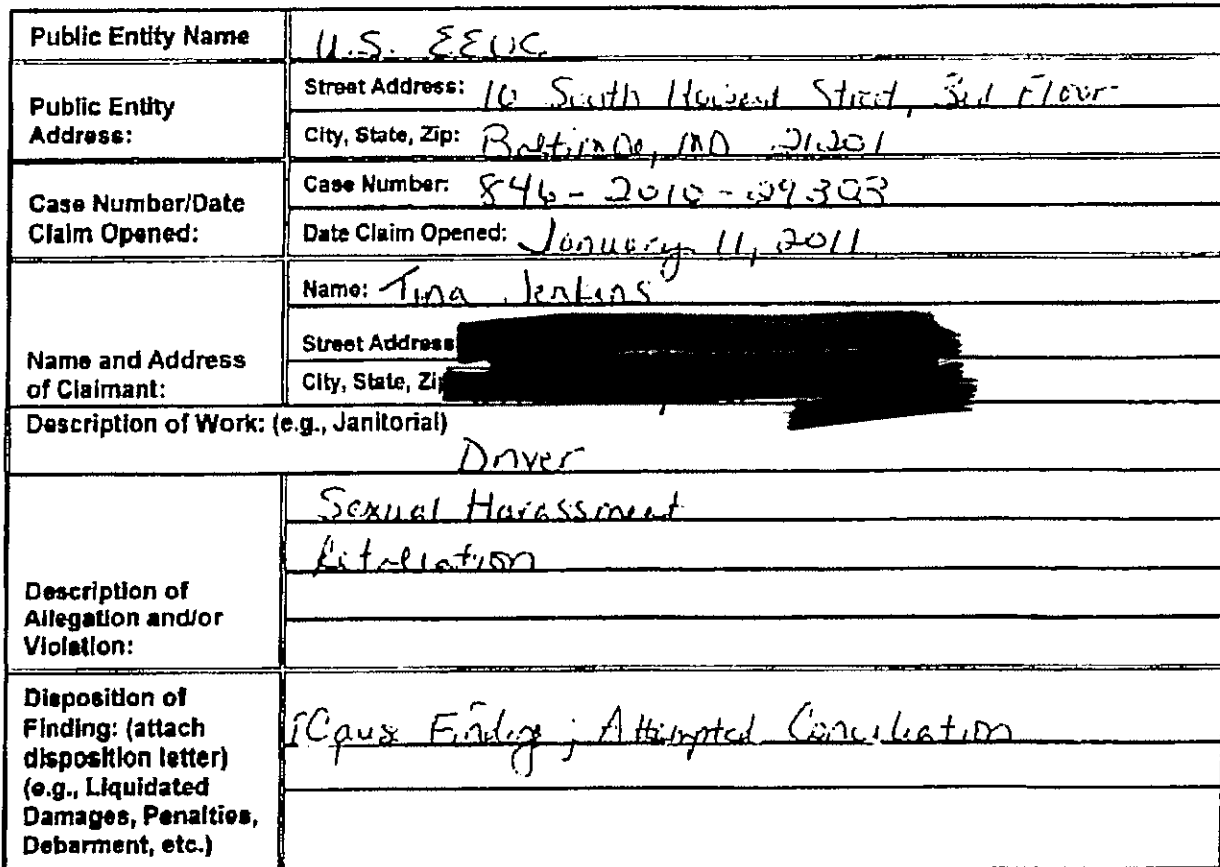 Public Entity Name
U.S. EEOC
Public Entity
Address:
Street Address: 10 South Howard Street, 3rd Floor
City, State, Zip: Baltimore, MD 21201
Case Number/Date
Claim Opened:
Case Number: 846-2010-
Date Claim Opened: January 11, 2011
Name and Address
of Claimant:
Name: Tina Jenkins
Street Address
City, State, Zip
Description of Work: (e.g., Janitorial)
Driver
Description of
Allegation and/or
Violation:
Sexual Harassment
Retaliation
Disposition of
Finding: (attach
disposition letter)
(e.g., Liquidated
Damages, Penalties,
Debarment, etc.)
Cause Finding; Attempted Conciliation